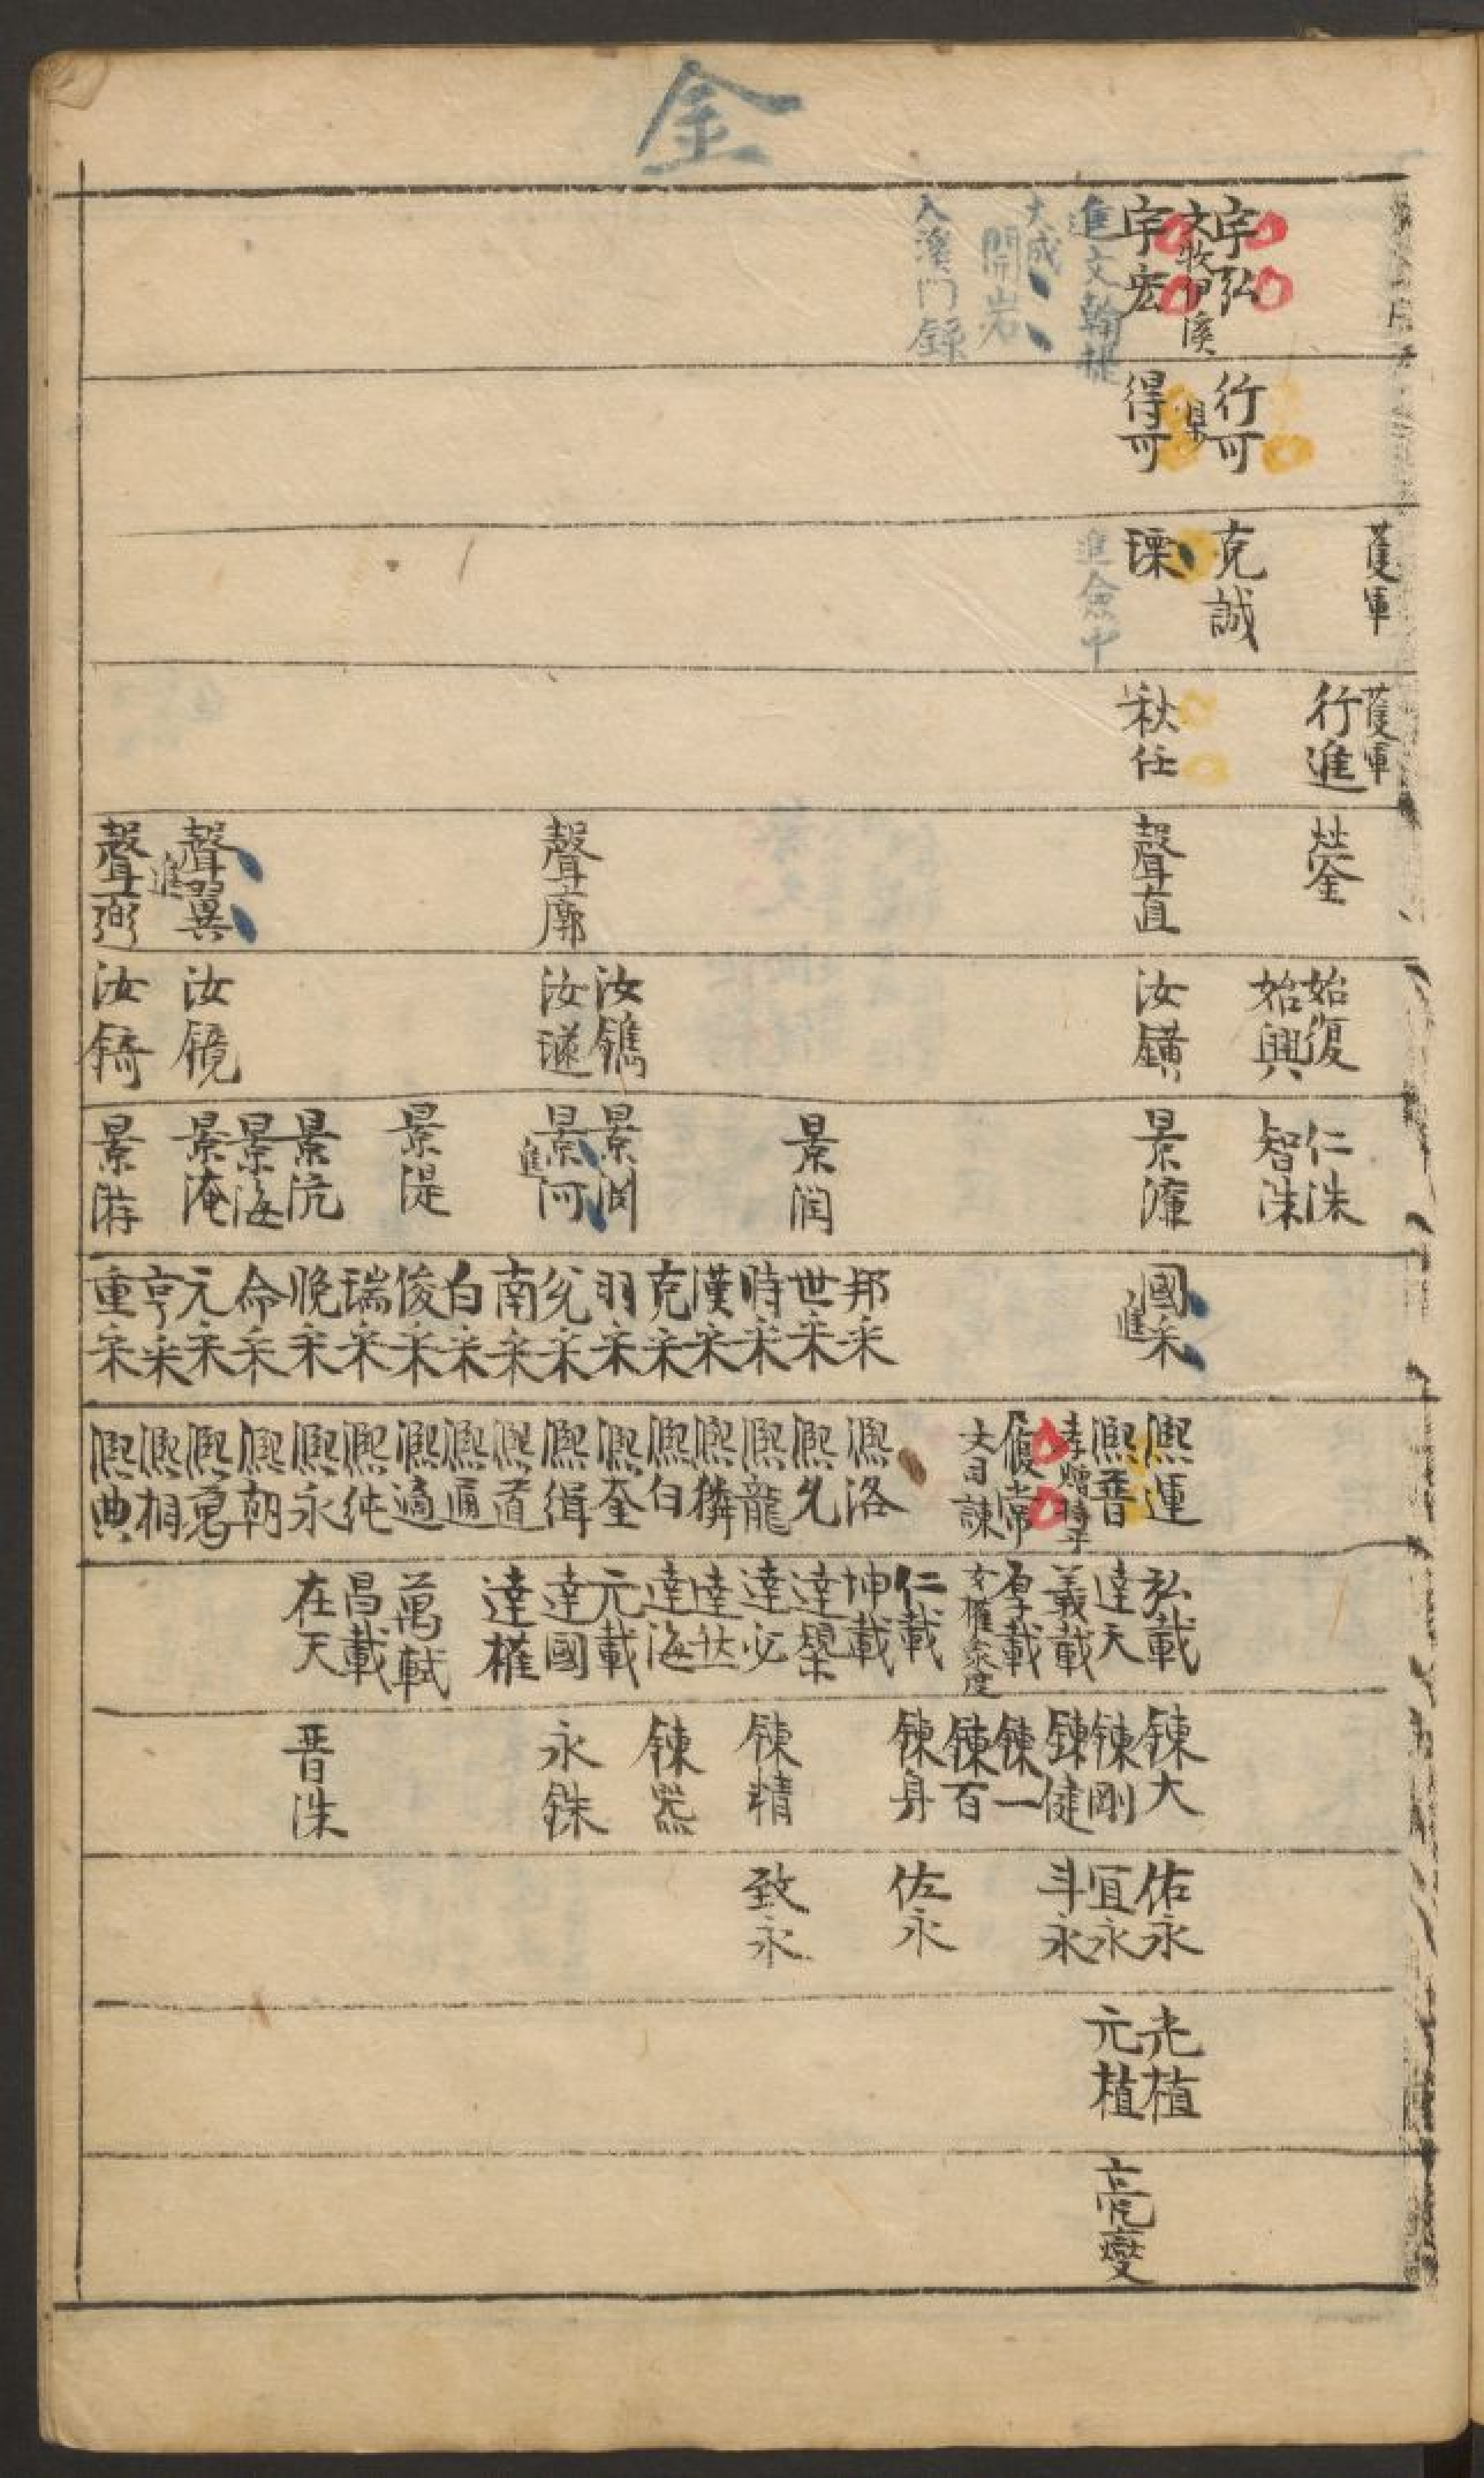 金
宇弘
文牧伊溪
宇宏
進文翰提
大成
開岩
入溪門錄
行可
縣
得可
護軍
克誠
瑮
進僉中
護軍
行進
秋任
瑩
聲直
聲廓
聲翼
進
聲彌
始復
始興
汝鐄
汝鐫
汝鏡
汝錡
仁洙
智洙
景濂
景潤
景澗
景河
進
景湜
景沆
景海
景淹
景游
國采
進
邦采
世采
時采
漢采
克采
羽采
兊采
南采
白采
俊采
瑞采
晩采
命采
元采
亨采
重采
熙運
熙晋
孝贈持平
履常
文司諫
熙洛
熙允
熙龍
熙獜
熙白
熙奎
熙緝
熙道
熙通
熙適
熙純
熙永
熙朝
熙萬
熙相
熙典
弘載
達天
義載
厚載
文權
仁載
坤載
達榘
達必
達海
元載
達國
達權
萬軾
昌載
在天
鍊大
鍊剛
鍊健
鍊一
鍊百
鍊身
鍊精
鍊器
永銖
晋洙
佑永
宜永
斗永
佐永
致永
光植
元植
亮燮